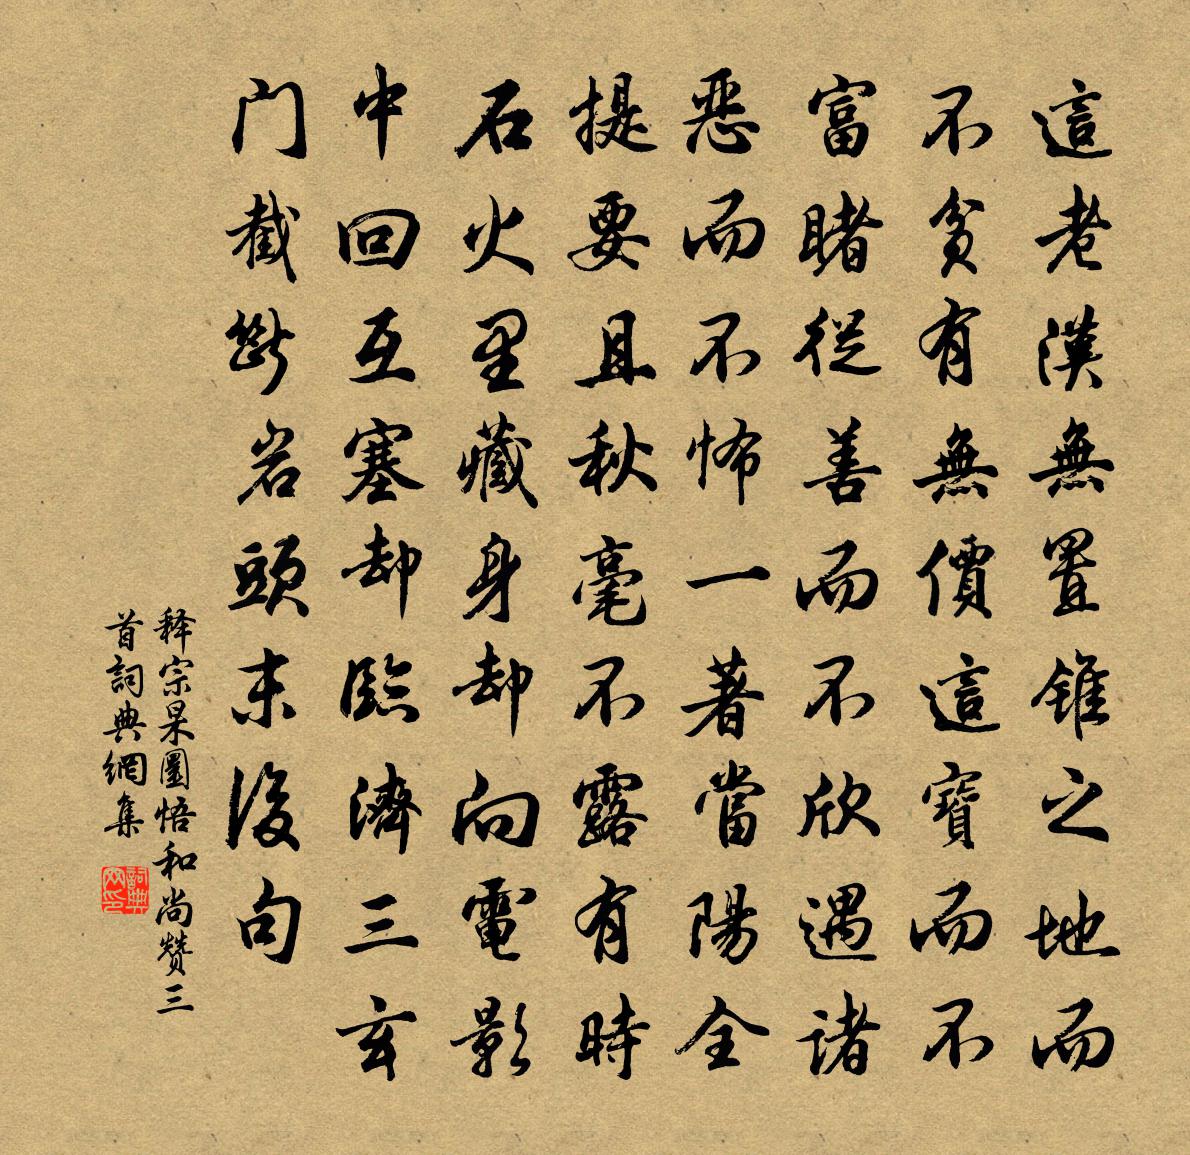 這老漢無置錐之地而
不貧有無價這寶而不
富睹從善而不欣遇诸
惡而不怖一著當陽全
提要且秋毫不露有時
石火里藏身却向電影
中回互塞却臨濟三玄
门截斷岩頭末後句
释宗杲圜悟和尚赞三
首詞典網集